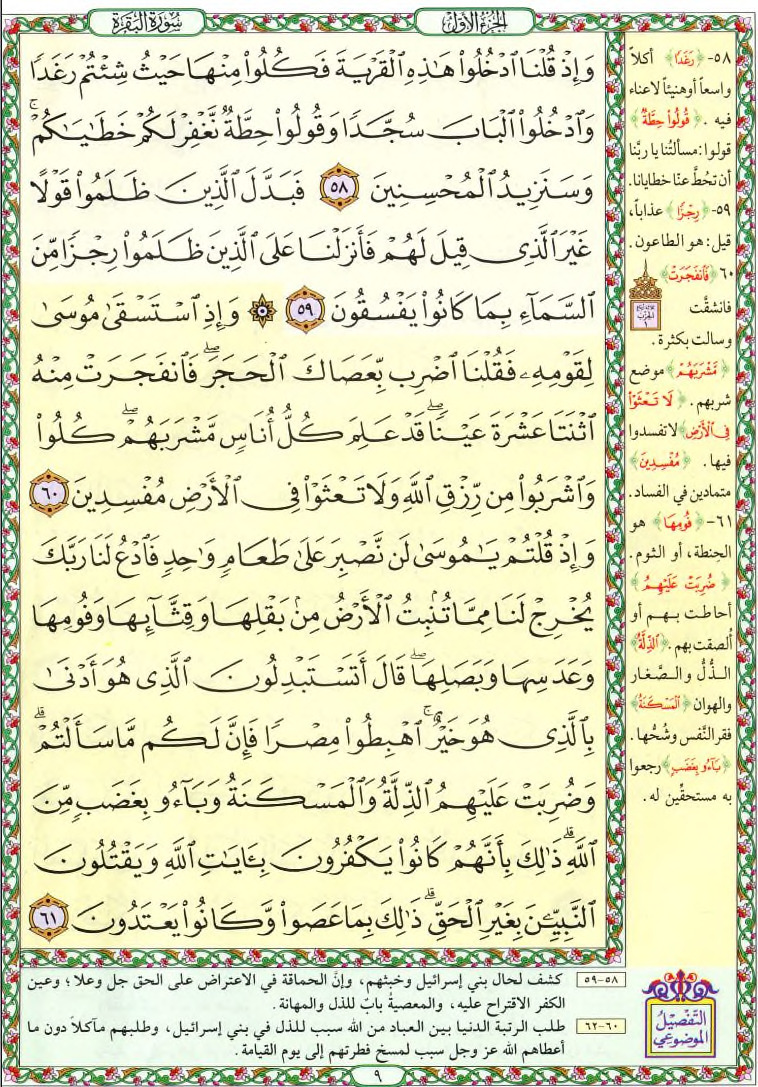 سُورَةُ البَقَرَة
الجُزءُ الأوّل
وَإِذْ قُلْنَا ٱدْخُلُوا۟ هَٰذِهِ ٱلْقَرْيَةَ فَكُلُوا۟ مِنْهَا حَيْثُ شِئْتُمْ رَغَدًا
وَٱدْخُلُوا۟ ٱلْبَابَ سُجَّدًا وَقُولُوا۟ حِطَّةٌ نَّغْفِرْ لَكُمْ خَطَٰيَٰكُمْ ۚ
وَسَنَزِيدُ ٱلْمُحْسِنِينَ ٥٨ فَبَدَّلَ ٱلَّذِينَ ظَلَمُوا۟ قَوْلًا
غَيْرَ ٱلَّذِى قِيلَ لَهُمْ فَأَنزَلْنَا عَلَى ٱلَّذِينَ ظَلَمُوا۟ رِجْزًا مِّنَ
ٱلسَّمَآءِ بِمَا كَانُوا۟ يَفْسُقُونَ ٥٩ ۞ وَإِذِ ٱسْتَسْقَىٰ مُوسَىٰ
لِقَوْمِهِۦ فَقُلْنَا ٱضْرِب بِّعَصَاكَ ٱلْحَجَرَ ۖ فَٱنفَجَرَتْ مِنْهُ
ٱثْنَتَا عَشْرَةَ عَيْنًا ۖ قَدْ عَلِمَ كُلُّ أُنَاسٍ مَّشْرَبَهُمْ ۖ كُلُوا۟
وَٱشْرَبُوا۟ مِن رِّزْقِ ٱللَّهِ وَلَا تَعْثَوْا۟ فِى ٱلْأَرْضِ مُفْسِدِينَ ٦٠
وَإِذْ قُلْتُمْ يَٰمُوسَىٰ لَن نَّصْبِرَ عَلَىٰ طَعَامٍ وَٰحِدٍ فَٱدْعُ لَنَا رَبَّكَ
يُخْرِجْ لَنَا مِمَّا تُنۢبِتُ ٱلْأَرْضُ مِنۢ بَقْلِهَا وَقِثَّآئِهَا وَفُومِهَا
وَعَدَسِهَا وَبَصَلِهَا ۖ قَالَ أَتَسْتَبْدِلُونَ ٱلَّذِى هُوَ أَدْنَىٰ
بِٱلَّذِى هُوَ خَيْرٌ ۚ ٱهْبِطُوا۟ مِصْرًا فَإِنَّ لَكُم مَّا سَأَلْتُمْ ۗ
وَضُرِبَتْ عَلَيْهِمُ ٱلذِّلَّةُ وَٱلْمَسْكَنَةُ وَبَآءُو بِغَضَبٍ مِّنَ
ٱللَّهِ ۗ ذَٰلِكَ بِأَنَّهُمْ كَانُوا۟ يَكْفُرُونَ بِـَٔايَٰتِ ٱللَّهِ وَيَقْتُلُونَ
ٱلنَّبِيِّـۧنَ بِغَيْرِ ٱلْحَقِّ ۗ ذَٰلِكَ بِمَا عَصَوا۟ وَّكَانُوا۟ يَعْتَدُونَ ٦١
٥٨- ﴿رَغَدًا﴾ أكلاً
واسعاً أو هنيئاً لا عناء
فيه. ﴿قُولُوا۟ حِطَّةٌ﴾
قولوا: مسألتُنا يا ربَّنا
أن تحُطَّ عنّا خطايانا.
٥٩- ﴿رِجْزًا﴾ عذاباً،
قيل: هو الطاعون.
٦٠ ﴿فَٱنفَجَرَتْ﴾
فانشقَّت
وسالت بكثرة.
﴿مَّشْرَبَهُمْ﴾ موضع
شربهم. ﴿لَا تَعْثَوْا۟
فِى ٱلْأَرْضِ﴾ لا تفسدوا
فيها. ﴿مُفْسِدِينَ﴾
متمادين في الفساد.
٦١- ﴿فُومِهَا﴾ هو
الحِنطة، أو الثوم.
﴿ضُرِبَتْ عَلَيْهِمُ﴾
أحاطت بهم أو
أُلصقت بهم. ﴿ٱلذِّلَّةُ﴾
الذُّلُّ والصَّغار
والهوان ﴿ٱلْمَسْكَنَةُ﴾
فقر النَّفس وشُحُّها.
﴿بَآءُو بِغَضَبٍ﴾ رجعوا
به مستحقِّين له.
التَّفصيل
الموضوعي
٥٨-٥٩ كشف لحال بني إسرائيل وخبثهم، وإنَّ الحماقة في الاعتراض على الحق جل وعلا؛ وعين
الكفر الاقتراح عليه، والمعصيةُ بابٌ للذل والمهانة.
٦٠-٦٢ طلب الرتبة الدنيا بين العباد من الله سبب للذل في بني إسرائيل، وطلبهم مآكلاً دون ما
أعطاهم الله عز وجل سبب لمسخ فطرتهم إلى يوم القيامة.
٩